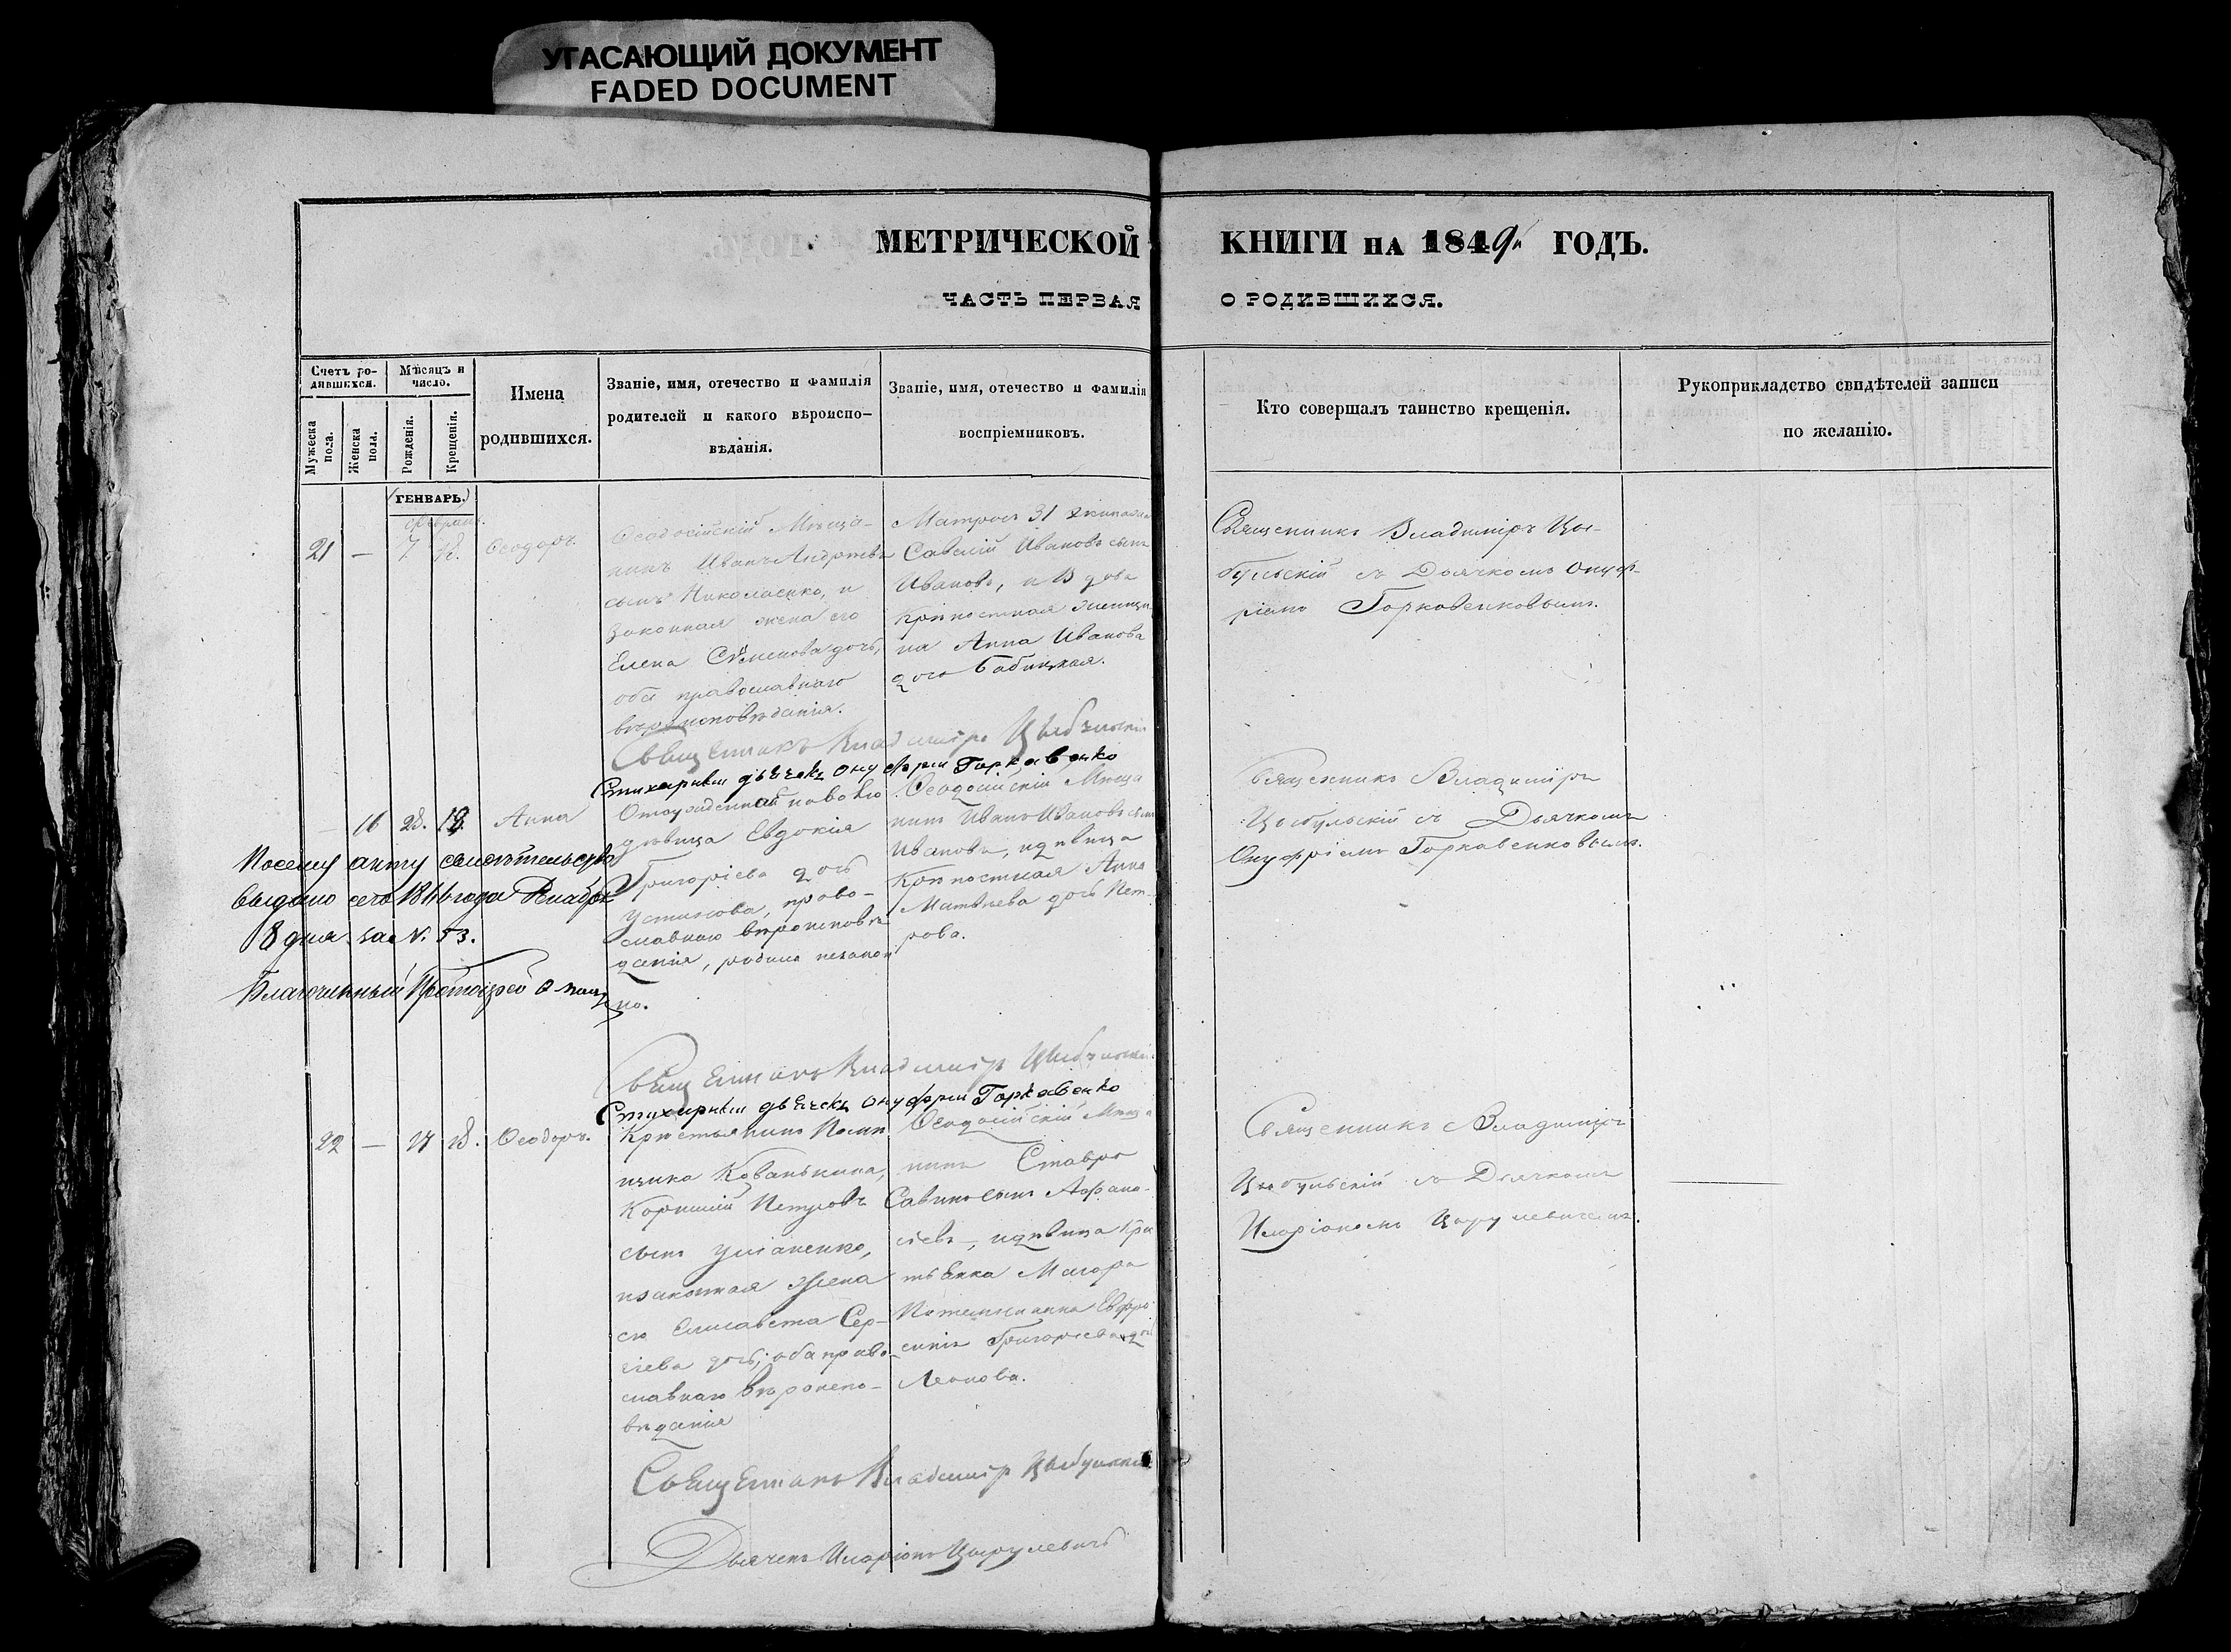 УГАСАЮЩИЙ ДОКУМЕНТ
FADED DOCUMENT
МЕТРИЧЕСКОЙ КНИГИ НА 1849й ГОДЪ.
ЧАСТЬ ПЕРВАЯ О РОДИВШИХСЯ.
Счетъ ро-
дившихся.
Мужеска пола.
Женска пола.
Мѣсяцъ и
число.
Рожденія.
Крещенія.
Имена
родившихся.
Званіе, имя, отечество и фамилія
родителей и какого вѣроиспо-
вѣданія.
Званіе, имя, отечество и фамилія
воспріемниковъ.
Кто совершалъ таинство крещенія.
Рукоприкладство свидѣтелей записи
по желанію.
(ГЕНВАРЬ.)
21 — 7 Ѳеодоръ.
Ѳеодосійскій Мѣща-
нинъ Иванъ Андреевъ
сынъ Николаенко, и
законная жена его
Елена Семенова дочь,
оба православнаго
вѣроисповѣданія.
Матросъ 31 экипажа
Савелій Ивановъ сынъ
Ивановъ, и вдова
крѣпостная женщи-
на Анна Иванова
дочь Бабицкая.
Священникъ Владиміръ Цы-
бульскій съ Дьячкомъ Онуф-
ріемъ Горковенковымъ.
Священникъ Владиміръ Цыбульскій
Стихарный дьячекъ Онуфрій Горкавенко
— 16 28. Анна
девица Евдокія
Григоріева дочь
Устинова, право-
славнаго вѣроисповѣ-
данія, родила незакон-
но.
Ѳеодосійскій Мѣща
нинъ Иванъ Ивановъ сынъ
Ивановъ, и дѣвица
Крѣпостная Анна
Матвѣева дочь Пет-
рова.
Священникъ Владиміръ
Цыбульскій съ Дьячкомъ
Онуфріемъ Горкавенковымъ.
По сему акту свидѣтельство
выдано
8 дня за N. 53.
Благочинный Протоіерей
Священникъ Владиміръ Цыбульскій
Стихарный дьячекъ Онуфрій Горкавенко
22 — Ѳеодоръ.
Крестьянинъ Помѣ
щика Кованькина,
Корнилій Петровъ
сынъ
и законная жена
его Елисавета Сер-
гіева дочь, оба право-
славнаго вѣроиспо-
вѣданія
Ѳеодосійскій Мѣща
нинъ Ставро
Савинъ сынъ Афана-
сіевъ, и дѣвица Крѣ
Маіора
Евфро
синія Григоріева дочь
Леонова.
Священникъ Владиміръ
Цыбульскій съ Дьячкомъ
Иларіономъ Цырулевичемъ.
Священникъ Владиміръ Цыбульскій
Дьячекъ Иларіонъ Цырулевичъ